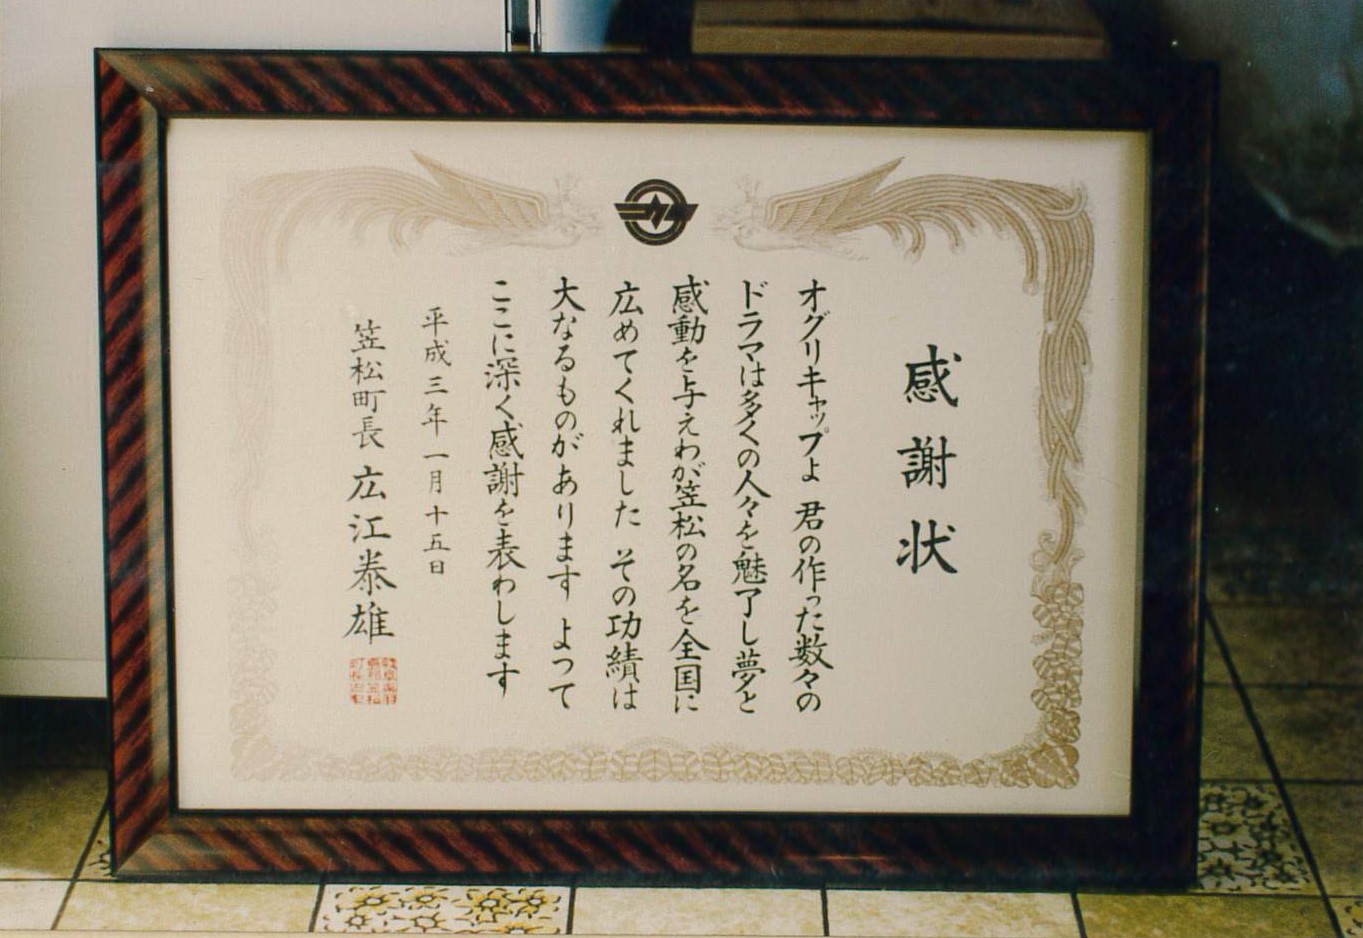 感謝状
オグリキャップよ 君の作った数々の
ドラマは多くの人々を魅了し夢と
感動を与えわが笠松の名を全国に
広めてくれました その功績は
大なるものがあります よつて
ここに深く感謝を表わします
平成三年一月十五日
笠松町長 広江恭雄